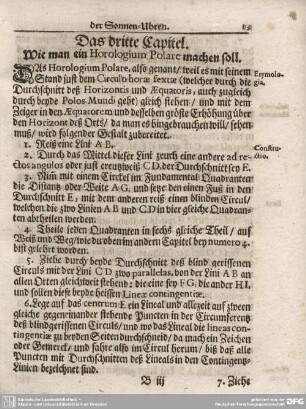 der Sonnen-Uhren.
Das dritte Capitel.
Wie man ein Horologium Polare machen soll.
DAs Horologium Polare, also genant/ weil es mit seinem
Stand just dem Circulo horæ sextæ (welcher durch die
Durchschnitt deß Horizontis und Æquatoris, auch zugleich
durch beyde Polos Mundi geht) gleich stehen/ und mit dem
Zeiger in den Æquatorem und desselben gröste Erhöhung über
den Horizont deß Orts/ da man es hingebrauchen will/ sehen
muß/ wird folgender Gestalt zubereitet.
Etymolo-
gia.
1. Reiß eine Lini A B.
2. Durch das Mittel dieser Lini zeuch eine andere ad re-
ctos angulos oder just creutzweiß C D. der Durchschnitt sey E.
Constru-
ctio.
3. Nim mit einem Circkel im Fundamental Quadranten
die Distantz oder Weite A G, und setze den einen Fuß in den
Durchschnitt E, mit dem anderen reiß einen blinden Circul/
welchen die zwo Linien A B und C D in vier gleiche Quadran-
ten abtheilen werden.
4. Theile jeden Quadranten in sechs gleiche Theil/ auf
Weiß und Weg/ wie du oben im andern Capitel bey numero 4.
bist gelehret worden.
5. Ziehe durch beyde Durchschnitt deß blind gerissenen
Circuls mit der Lini C D zwo parallelas, von der Lini A B an
allen Orten gleichweit stehend: die eine sey F G, die ander H I,
und sollen diese beyde heissen Lineæ contingentiæ.
6. Lege auf das centrum E ein Lineal und allezeit auf zween
gleiche gegeneinander stehende Puncten in der Circumferentz
deß blindgerissenen Circuls/ und wo das Lineal die lineas con-
tingentiæ zu beyden Seiten durchschneid/ da mach ein Zeichen
oder Gemerck/ und fahre also im Circul herum/ biß daß alle
Puncten mit Durchschnitten deß Lineals in den Contingentz-
Linien bezeichnet sind.
B iij
7. Ziehe